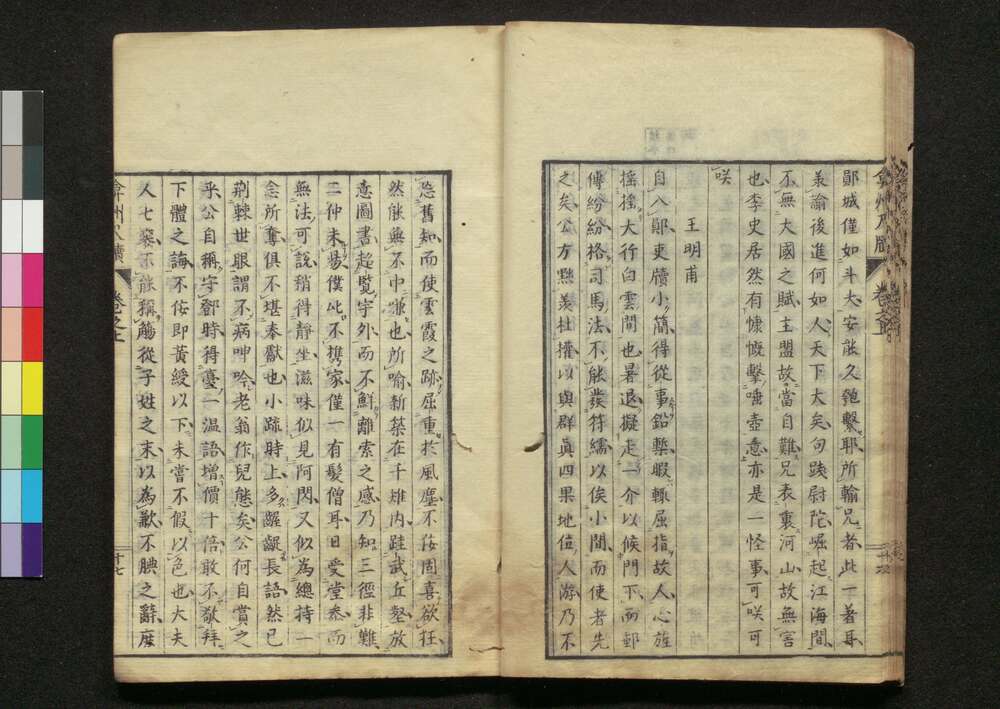 鄖城僅如斗大安能久匏繫耶所輸兄者此一著耳
義論後進何如人天下大矣句踐尉陀崛起江海間
不無大國之賦主盟故當自難兄表裏河山故無害
也李史居然有慷慨擊唾壺意亦是一怪事可咲可
咲
王明甫
自入鄖吏牘小簡得從事鉛槧暇輒屈指故人心旌
搖搖大行白雲間也暑退擬走一介以候門下而郵
傳紛紛格司馬法不能發符繻以俟小間而使者先
之矣公方點蒼杜權以與群真四果地位人游乃不
忘舊知而使雲霞之跡屈重於風塵不佞固喜欲狂
然能無不中慊也所喻新築在千雉內跬武丘壑放
意圖書超覽宇外而不鮮離索之感乃知三徑非難
二仲未易僕此不攜家僅一有髮僧耳日受堂叅而
無法可說稍得靜坐滋味似見阿閦又似為總持一
念所奪俱不堪奉獻也小疏時上多齷齪長語然已
荊棘世眼謂不病呻吟老翁作兒態矣公何自賞之
乎公自稱守鄧時得臺一溫語增價十倍敢不敬拜
下體之誨不佞即黃綬以下未嘗不假以色也大夫
人七袠不能稱觴從子姓之末以為歉不腆之辭庶
弇州尺牘
卷之上
十七